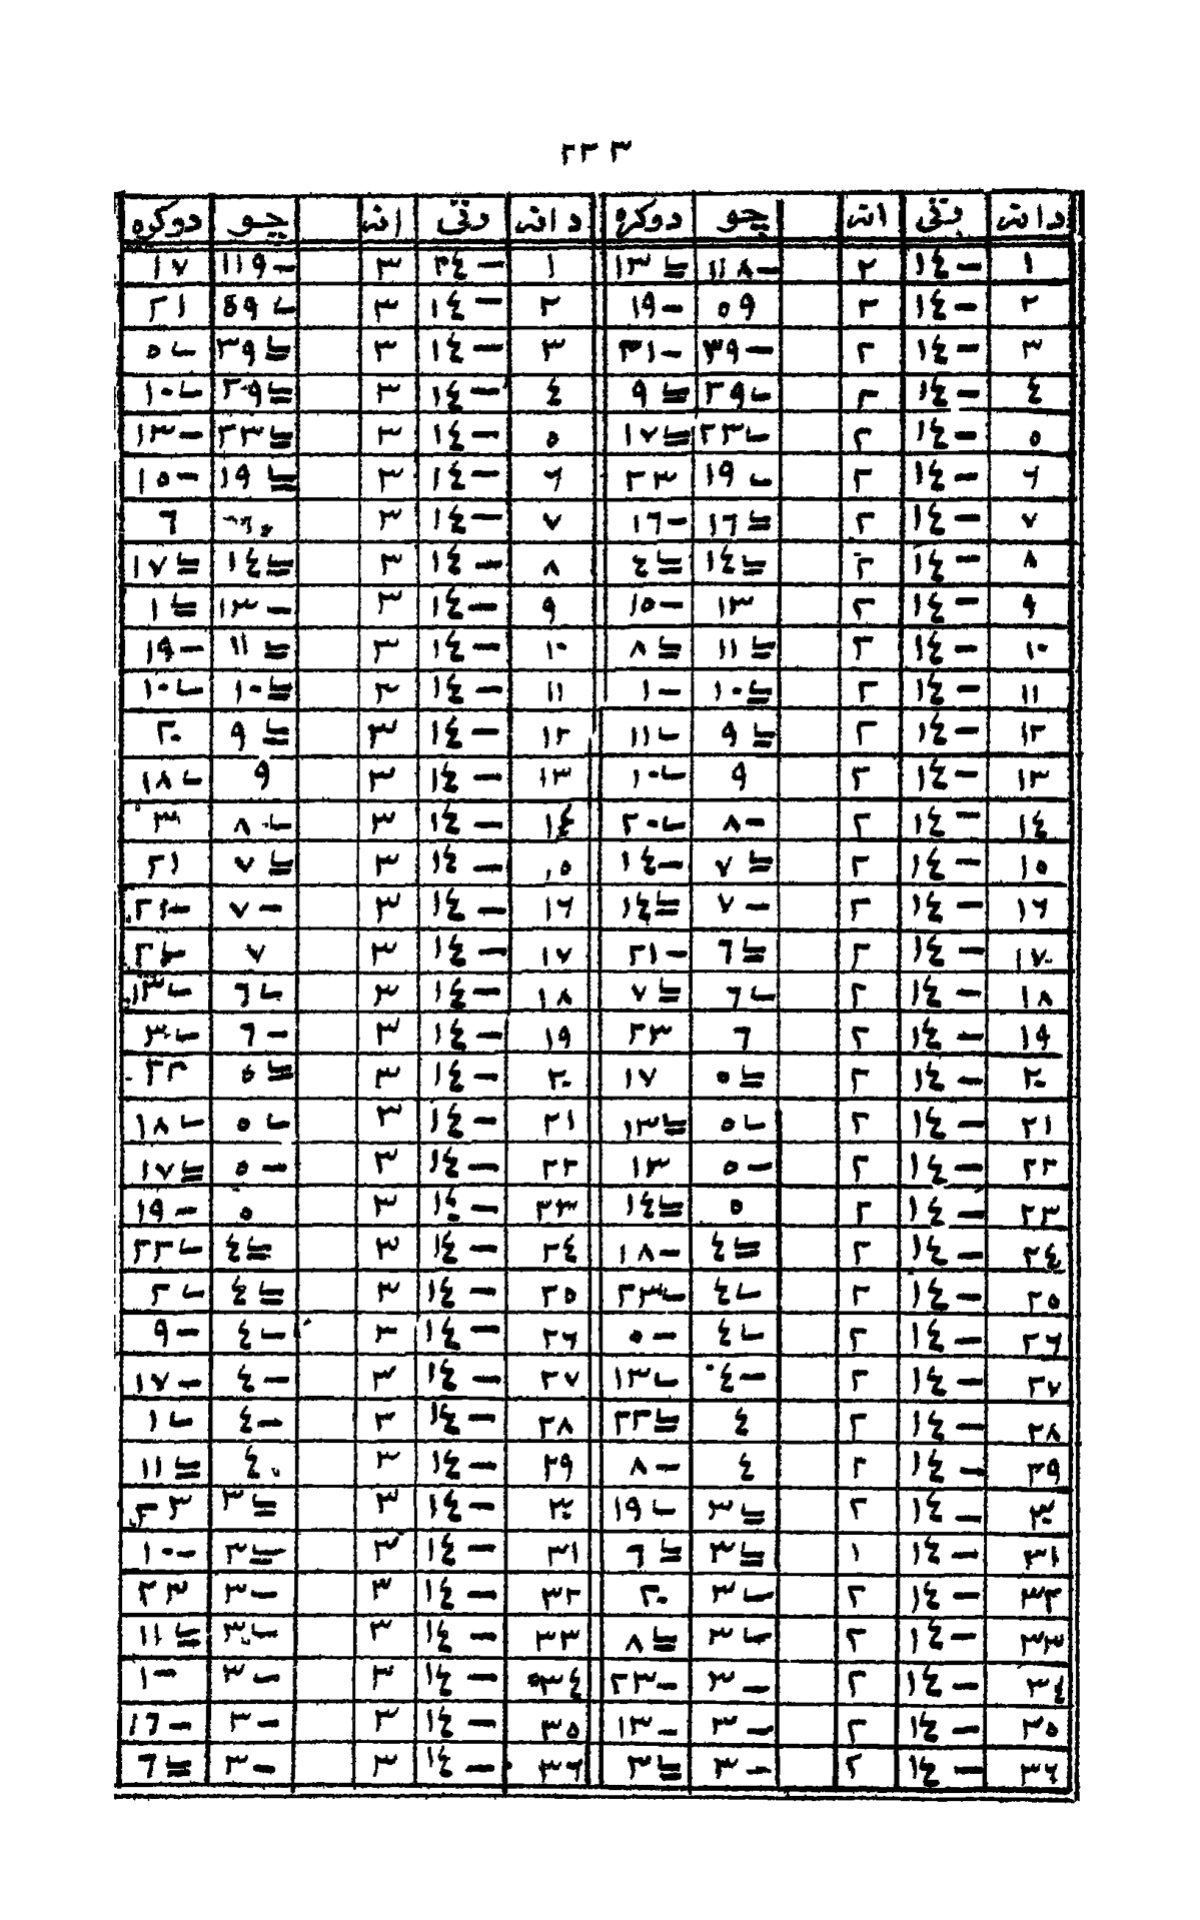 ٢٢٣
دانه رتي انه چو دوكره دانه رتي انه چو دوكره
١ ١٤- ٢ ١١٨- ١٣≡ ١ ١٤- ٣ ١١٩- ١٧
٢ ١٤- ٢ ٥٩ ١٩- ٢ ١٤- ٣ ٥٩ٮ ٢١
٣ ١٤- ٢ ٣٩- ٢١- ٣ ١٤- ٣ ٣٩≡ ٥ٮ
٤ ١٤- ٢ ٢٩ٮ ٩≡ ٤ ١٤- ٣ ٢٩≡ ١٠ٮ
٥ ١٤- ٢ ٢٣ٮ ١٧≡ ٥ ١٤- ٣ ٢٣≡ ١٣-
٦ ١٤- ٢ ١٩ٮ ٢٣ ٦ ١٤- ٣ ١٩≡ ١٥-
٧ ١٤- ٢ ١٦≡ ١٦- ٧ ١٤- ٣ ٦
٨ ١٤- ٢ ١٤≡ ٤≡ ٨ ١٤- ٣ ١٤≡ ١٧≡
٩ ١٤- ٢ ١٣ ١٥- ٩ ١٤- ٣ ١٣- ١≡
١٠ ١٤- ٢ ١١≡ ٨≡ ١٠ ١٤- ٣ ١١≡ ١٩-
١١ ١٤- ٢ ١٠≡ ١- ١١ ١٤- ٣ ١٠≡ ١٠ٮ
١٢ ١٤- ٢ ٩≡ ١١ٮ ١٢ ١٤- ٣ ٩≡ ٢٠
١٣ ١٤- ٢ ٩ ١٠ٮ ١٣ ١٤- ٣ ٩ ١٨ٮ
١٤ ١٤- ٢ ٨- ٢٠ٮ ١٤ ١٤- ٣ ٨ٮ ٣
١٥ ١٤- ٢ ٧≡ ١٤- ١٥ ١٤- ٣ ٧≡ ٢١
١٦ ١٤- ٢ ٧- ١٤≡ ١٦ ١٤- ٣ ٧- ٢١-
١٧ ١٤- ٢ ٦≡ ٢١- ١٧ ١٤- ٣ ٧
١٨ ١٤- ٢ ٦ٮ ٧≡ ١٨ ١٤- ٣ ٦ٮ ١٣ٮ
١٩ ١٤- ٢ ٦ ٢٣ ١٩ ١٤- ٣ ٦-
٢٠ ١٤- ٢ ٥≡ ١٧ ٢٠ ١٤- ٣ ٥≡ ٢٢
٢١ ١٤- ٢ ٥ٮ ١٣≡ ٢١ ١٤- ٣ ٥ٮ ١٨ٮ
٢٢ ١٤- ٢ ٥- ١٣ ٢٢ ١٤- ٣ ٥- ١٧≡
٢٣ ١٤- ٢ ٥ ١٤≡ ٢٣ ١٤- ٣ ٥ ١٩-
٢٤ ١٤- ٢ ٤≡ ١٨- ٢٤ ١٤- ٣ ٤≡ ٢٢ٮ
٢٥ ١٤- ٢ ٤ٮ ٢٣ٮ ٢٥ ١٤- ٣ ٤≡ ٢ٮ
٢٦ ١٤- ٢ ٤ٮ ٥- ٢٦ ١٤- ٣ ٤ٮ ٩-
٢٧ ١٤- ٢ ٤- ١٣ٮ ٢٧ ١٤- ٣ ٤- ١٧-
٢٨ ١٤- ٢ ٤ ٢٢≡ ٢٨ ١٤- ٣ ٤- ١ٮ
٢٩ ١٤- ٢ ٤ ٨- ٢٩ ١٤- ٣ ٤ ١١≡
٣٠ ١٤- ٢ ٣≡ ١٩ٮ ٣٠ ١٤- ٣ ٣≡
٣١ ١٤- ١ ٣≡ ٦≡ ٣١ ١٤- ٣ ٣≡ ١٠-
٣٢ ١٤- ٢ ٣ٮ ٢٠ ٣٢ ١٤- ٣ ٣- ٢٣
٣٣ ١٤- ٢ ٣ٮ ٨≡ ٣٣ ١٤- ٣ ٣ٮ ١١≡
٣٤ ١٤- ٢ ٣- ٢٣- ٣٤ ١٤- ٣ ٣ٮ ١-
٣٥ ١٤- ٢ ٣- ١٣- ٣٥ ١٤- ٣ ٣- ١٦-
٣٦ ١٤- ٢ ٣- ٣≡ ٣٦ ١٤- ٣ ٣- ٦≡